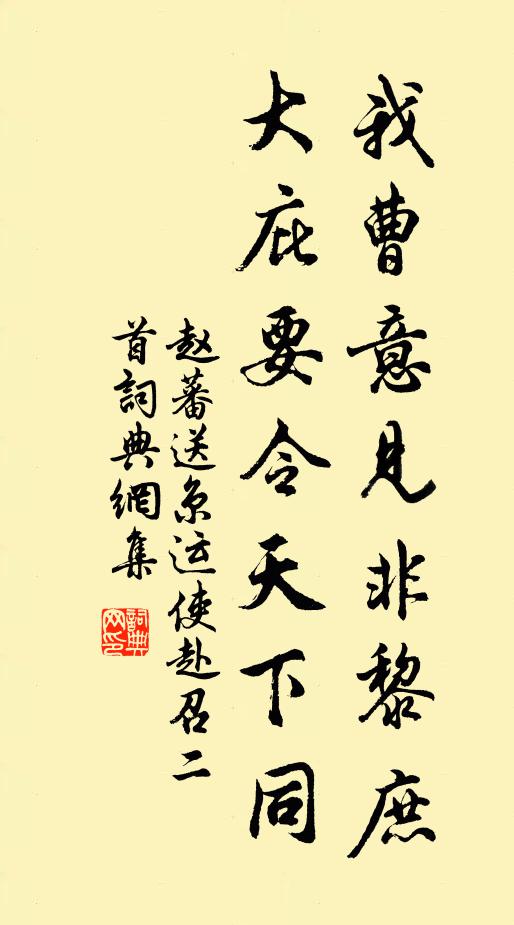 我曹意見非黎庶
大庇要令天下同
赵蕃送京运使赴召二
首詞典網集
詞典
网印